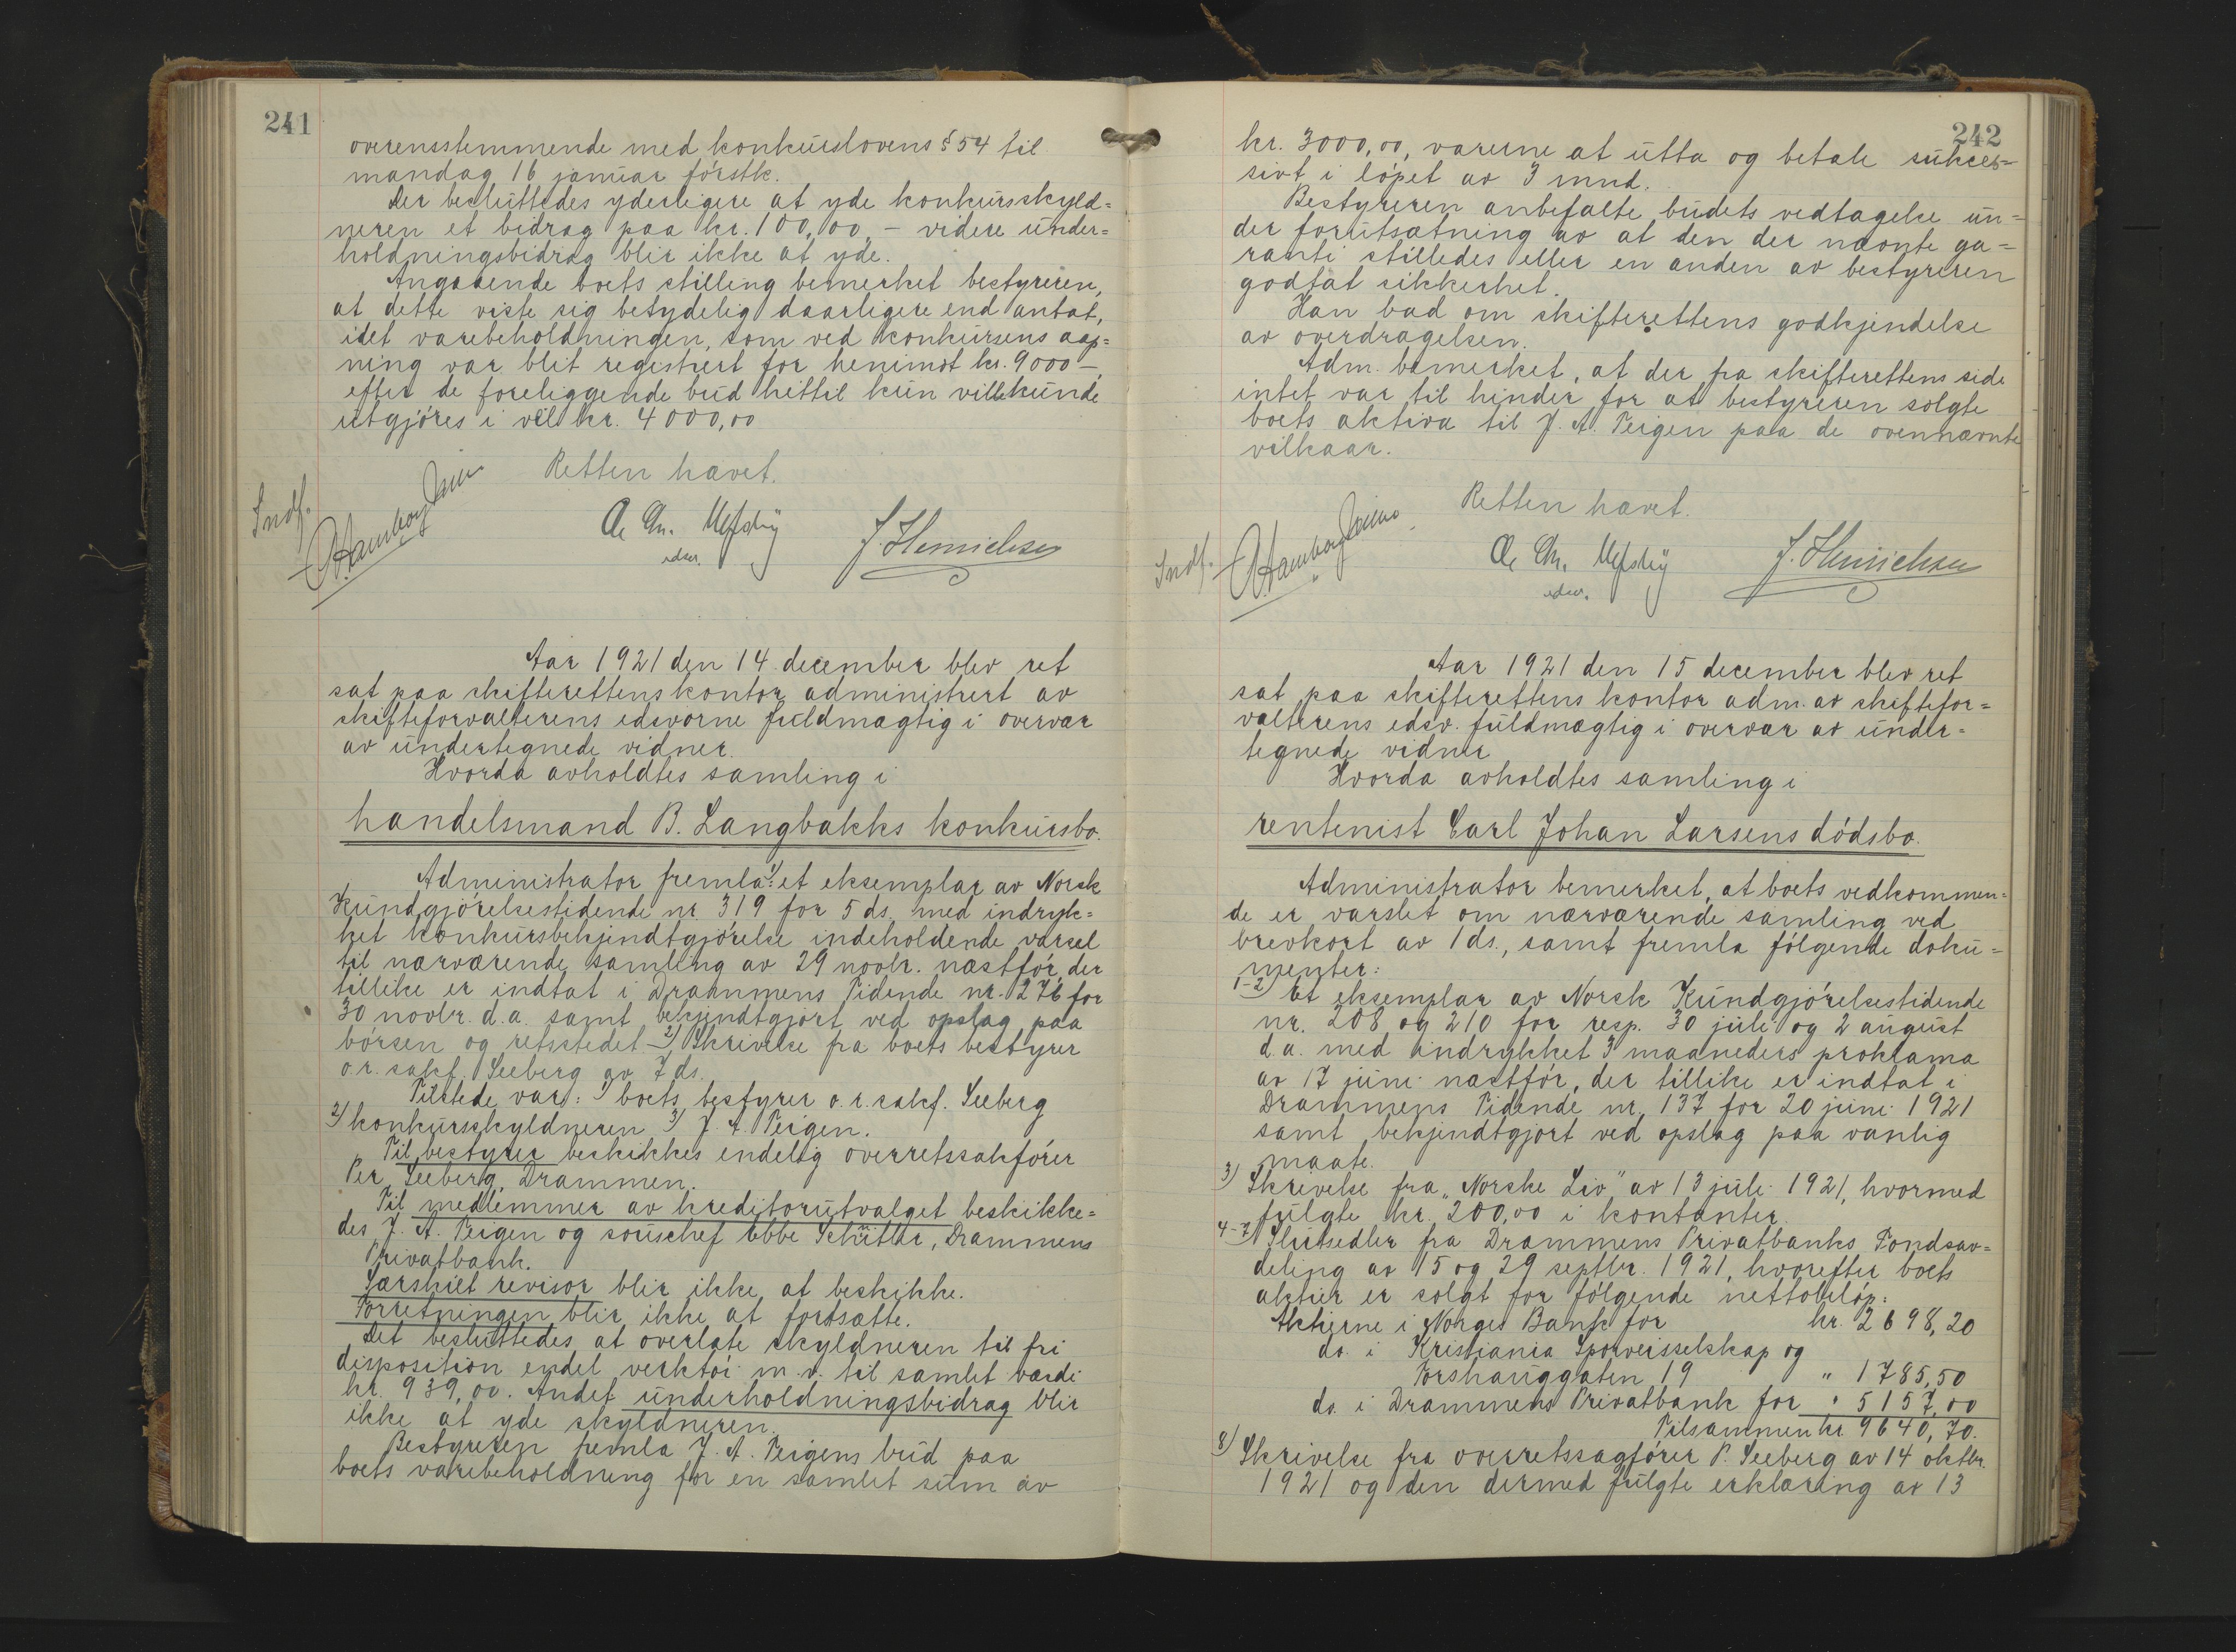 241
overensstemmende med konkurslovens § 54 til
mandag 16 januar førstk.
Der besluttedes yderligere at yde konkursskyld=
neren et bidrag paa kr. 100,00, – videre under=
holdningsbidrag blir ikke at yde.
Angaaende boets stilling bemerket bestyreren,
at dette viste sig betydelig daarligere end antat,
idet varebeholdningen, som ved konkursens aap=
ning var blit registrert for henimot kr. 9000 –,
efter de foreliggende bud hittil kun vilde kunde
utgjøres i vel kr. 4000,00
Retten hævet.
Indf.
edsv.
J. Henrichsen
Aar 1921 den 14. december blev ret
sat paa skifterettens kontor administrert av
skifteforvalterens edsvorne fuldmægtig i overvær
av undertegnede vidner.
Hvorda avholdtes samling i
handelsmand B. Langbakks konkursbo.
Administrator fremla: 1) et eksemplar av Norsk
Kundgjørelsestidende nr. 319 for 5 ds. med indryk=
ket konkursbekjendtgjørelse indeholdende varsel
til nærværende samling av 29 novbr. næstfør, der
tillike er indtat i Drammens Tidende nr. 276 for
30 novbr. d.a. samt bekjendtgjort ved opslag paa
børsen og retsstedet – 2) Skrivelse fra boets bestyrer
o.r. sakf. Seeberg av 7 ds.
Tilstede var: 1) boets bestyrer o.r.sakf. Seeberg
2) konkursskyldneren 3) J. A. Teigen.
Til bestyrer beskikkes endelig overretssakfører
Per Seeberg, Drammen.
Til medlemmer av kreditorutvalget beskikke=
des J. A. Teigen og souschef Ebbe Schütler, Drammens
Privatbank.
Særskilt revisor blir ikke at beskikke.
Forretningen blir ikke at fortsætte.
Det besluttedes at overlate skyldneren til fri
disposition endel verktøi m.v. til samlet værdi
kr. 939,00. Andet underholdningsbidrag blir
ikke at yde skyldneren.
Bestyreren fremla J. A. Teigens bud paa
boets varebeholdning for en samlet sum av
242
kr. 3000,00, varerne at utta og betale sukces=
sivt i løpet av 3 mnd.
Bestyreren anbefalte budets vedtagelse un=
der forutsætning av at den der nævnte ga=
ranti stilledes eller en anden av bestyreren
godtat sikkerhet.
Han bad om skifterettens godkjendelse
av overdragelsen.
Adm. bemerket, at der fra skifterettens side
intet var til hinder for at bestyreren solgte
boets aktiva til J. A. Teigen paa de ovennævnte
vilkaar.
Retten hævet.
Indf.
edsv.
J. Henrichsen
Aar 1921 den 15 december blev ret
sat paa skifterettens kontor adm. av skiftefor=
valterens edsv. fuldmægtig i overvær av under=
tegnede vidner
Hvorda avholdtes samling i
rentenist Carl Johan Larsens dødsbo.
Administrator bemerket, at boets vedkommen=
de er varslet om nærværende samling ved
brevkort av 1 ds., samt fremla følgende doku=
menter:
1-2) Et eksemplar av Norsk Kundgjørelsestidende
nr. 208 og 210 for resp. 30 juli og 2 august
d.a. med indrykket 3 maaneders proklama
av 17 juni næstfør, der tillike er indtat i
Drammens Tidende nr. 137 for 20 juni 1921
samt bekjendtgjort ved opslag paa vanlig
maate.
3) Skrivelse fra „Norske Liv" av 13 juli 1921, hvormed
fulgte kr. 200,00 i kontanter.
4-7) Slutsedler fra Drammens Privatbanks Fondsav=
deling av 15 og 29 septbr. 1921, hvorefter boets
aktier er solgt for følgende nettobeløp:
Aktierne i Norges Bank for kr. 2698,20
do. i Kristiania Sporveisselskap og
Forshauggaten 19 " 1785,50
do. i Drammens Privatbank for " 5157,00
Tilsammen kr. 9640,70.
8) Skrivelse fra overretssagfører P. Seeberg av 14 oktbr.
1921 og den dermed fulgte erklæring av 13